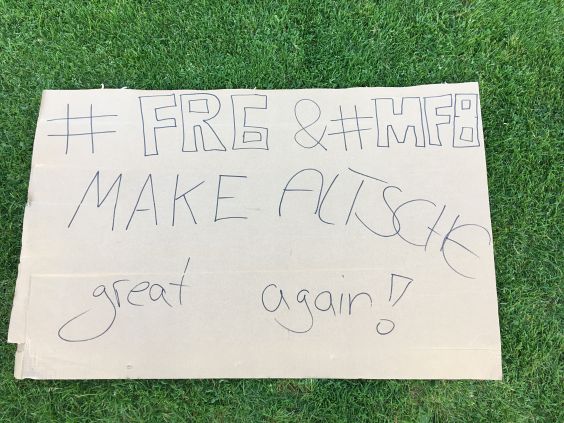 # FR6 & #MF8
MAKE ALTSCHE
great again!